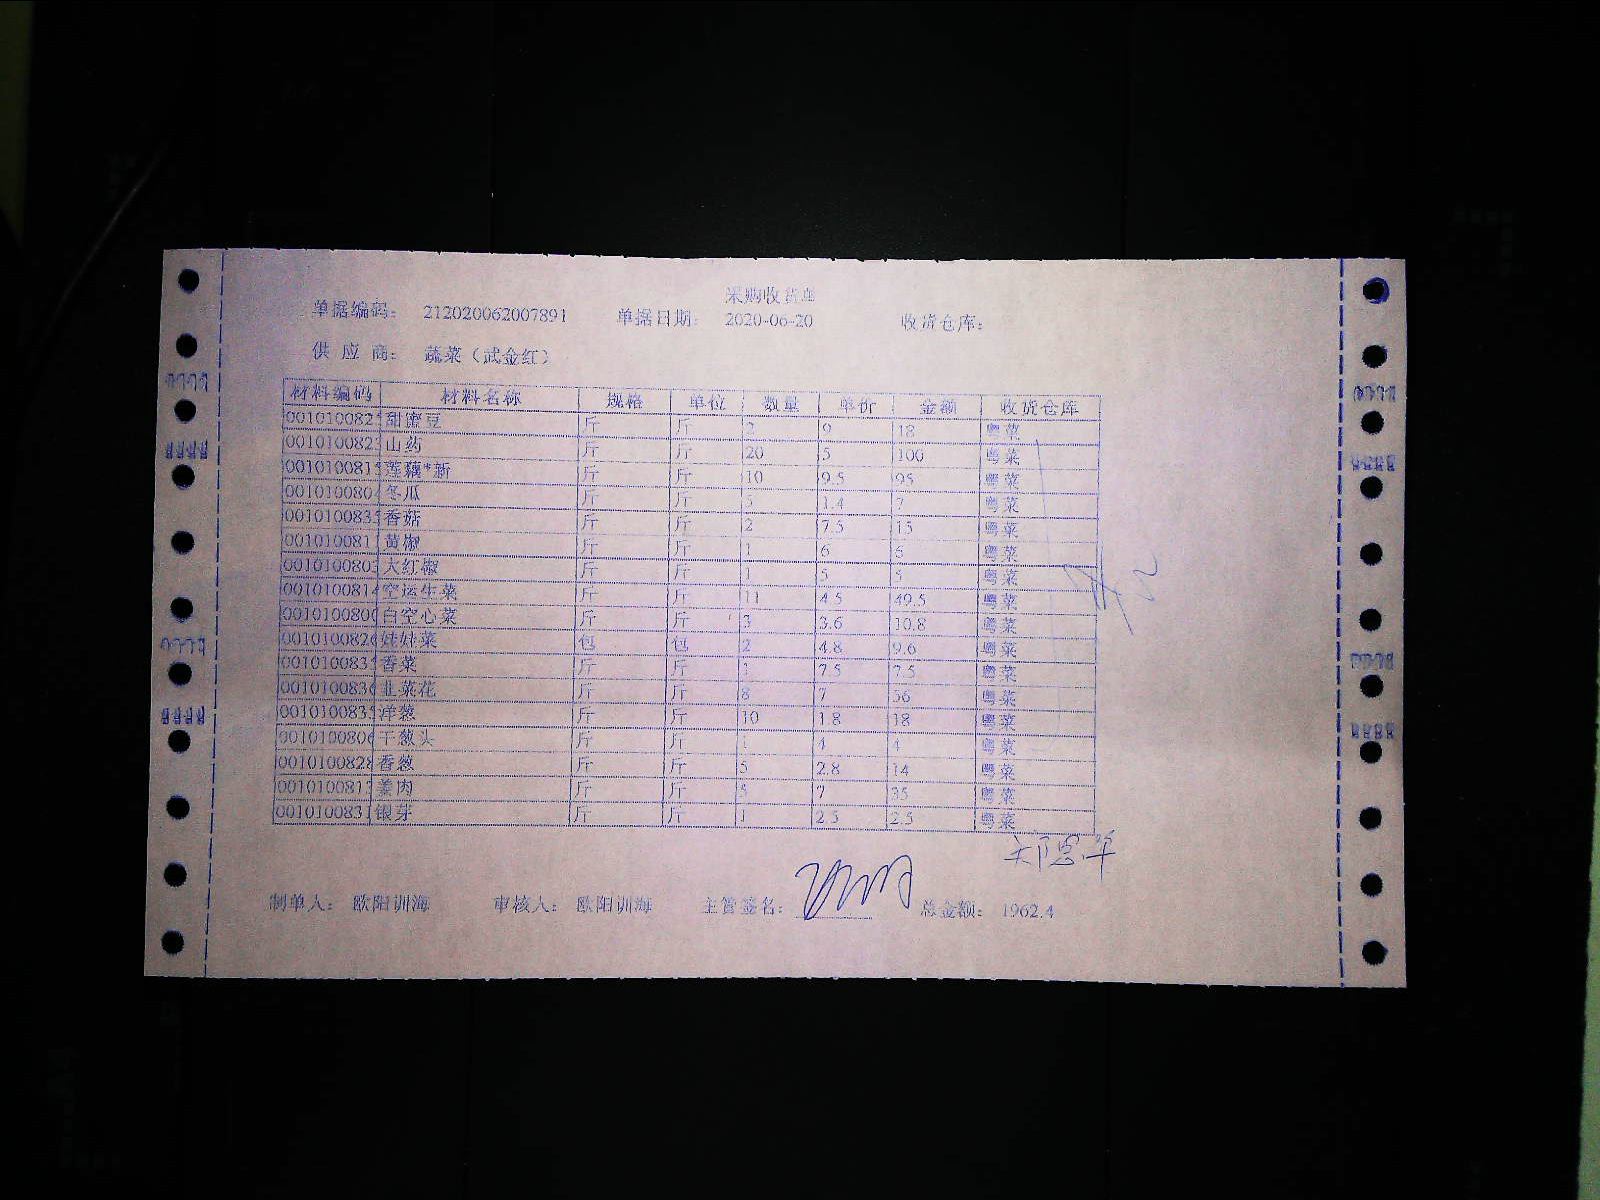 采购收货单
单据编码： 212020062007891 单据日期： 2020-06-20 收货仓库：
供 应 商： 蔬菜（武金红）
材料编码 材料名称 规格 单位 数量 单价 金额 收货仓库
001010082 甜蜜豆 斤 斤 2 9 18 粤菜
001010082 山药 斤 斤 20 5 100 粤菜
001010081 莲藕*新 斤 斤 10 9.5 95 粤菜
001010080 冬瓜 斤 斤 5 1.4 7 粤菜
001010083 香菇 斤 斤 2 7.5 15 粤菜
001010081 黄椒 斤 斤 1 6 6 粤菜
001010080 大红椒 斤 斤 1 5 5 粤菜
001010081 空运生菜 斤 斤 11 4.5 49.5 粤菜
001010080 白空心菜 斤 斤 3 3.6 10.8 粤菜
001010082 娃娃菜 包 包 2 4.8 9.6 粤菜
001010083 香菜 斤 斤 1 7.5 7.5 粤菜
001010083 韭菜花 斤 斤 8 7 56 粤菜
001010083 洋葱 斤 斤 10 1.8 18 粤菜
001010080 干葱头 斤 斤 1 4 4 粤菜
001010082 香葱 斤 斤 5 2.8 14 粤菜
001010081 姜肉 斤 斤 5 7 35 粤菜
001010083 银芽 斤 斤 1 2.5 2.5 粤菜
制单人： 欧阳训海 审核人： 欧阳训海 主管签名： 总金额： 1962.4